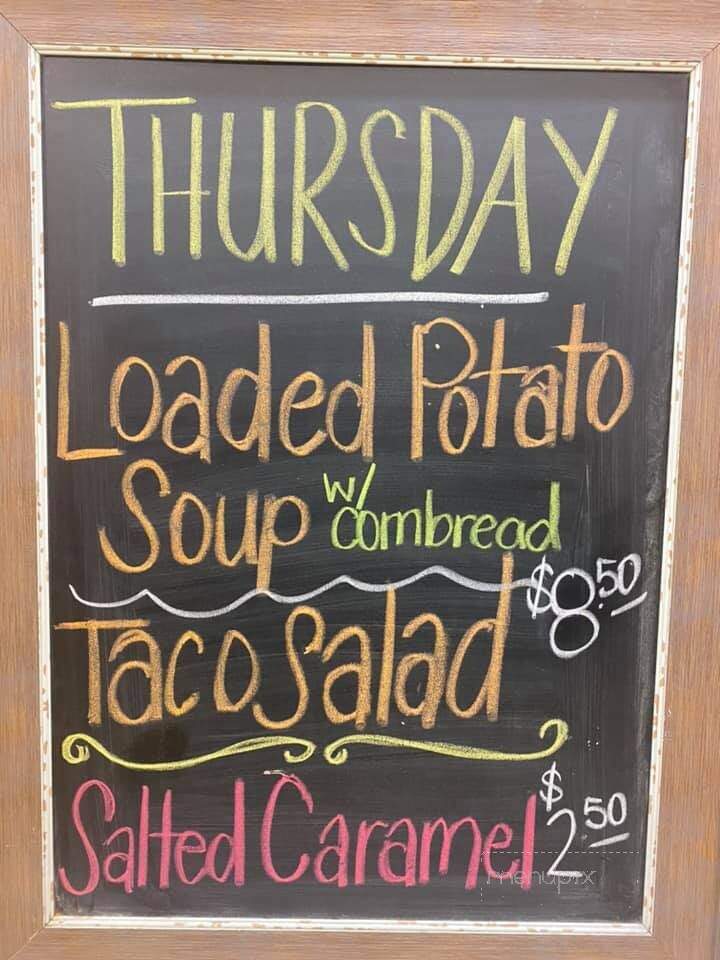 THURSDAY
Loaded Potato
Soup w/ cornbread
$8.50
Taco Salad
Salted Caramel $2.50
menupix